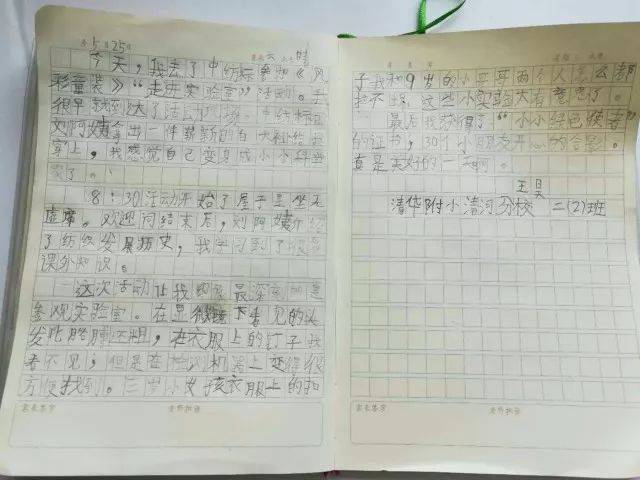 5月25日 晴
今天，我去了中纺标参加《风
彩童装》“走进实验室”活动。我
很早就到达了活动现场。中纺标的
刘阿姨拿出一件崭新的白大褂给我
穿上，我感觉自己变身成小小科学
家了。
8：30活动开始了屋子里坐无
虚席。欢迎词结束后，刘阿姨介绍
了纺织发展历史，我学习到了很多
课外知识。
这次活动让我印象最深刻的是
参观实验室。在显微镜下看见的头
发比胳膊还粗，在衣服上的钉子我
看不见，但是在检测机器上却能很
方便找到。三岁小女孩衣服上的扣
子我和9岁的小哥哥两个人怎么都
拉不掉，这些小实验太有意思了。
最后我获得了“小小绿色使者”
的证书，30个小朋友开心的合影。
真是美好的一天啊。
王昊
清华附小清河分校 二(2)班
家长签字 老师批语
家长签字 老师批语